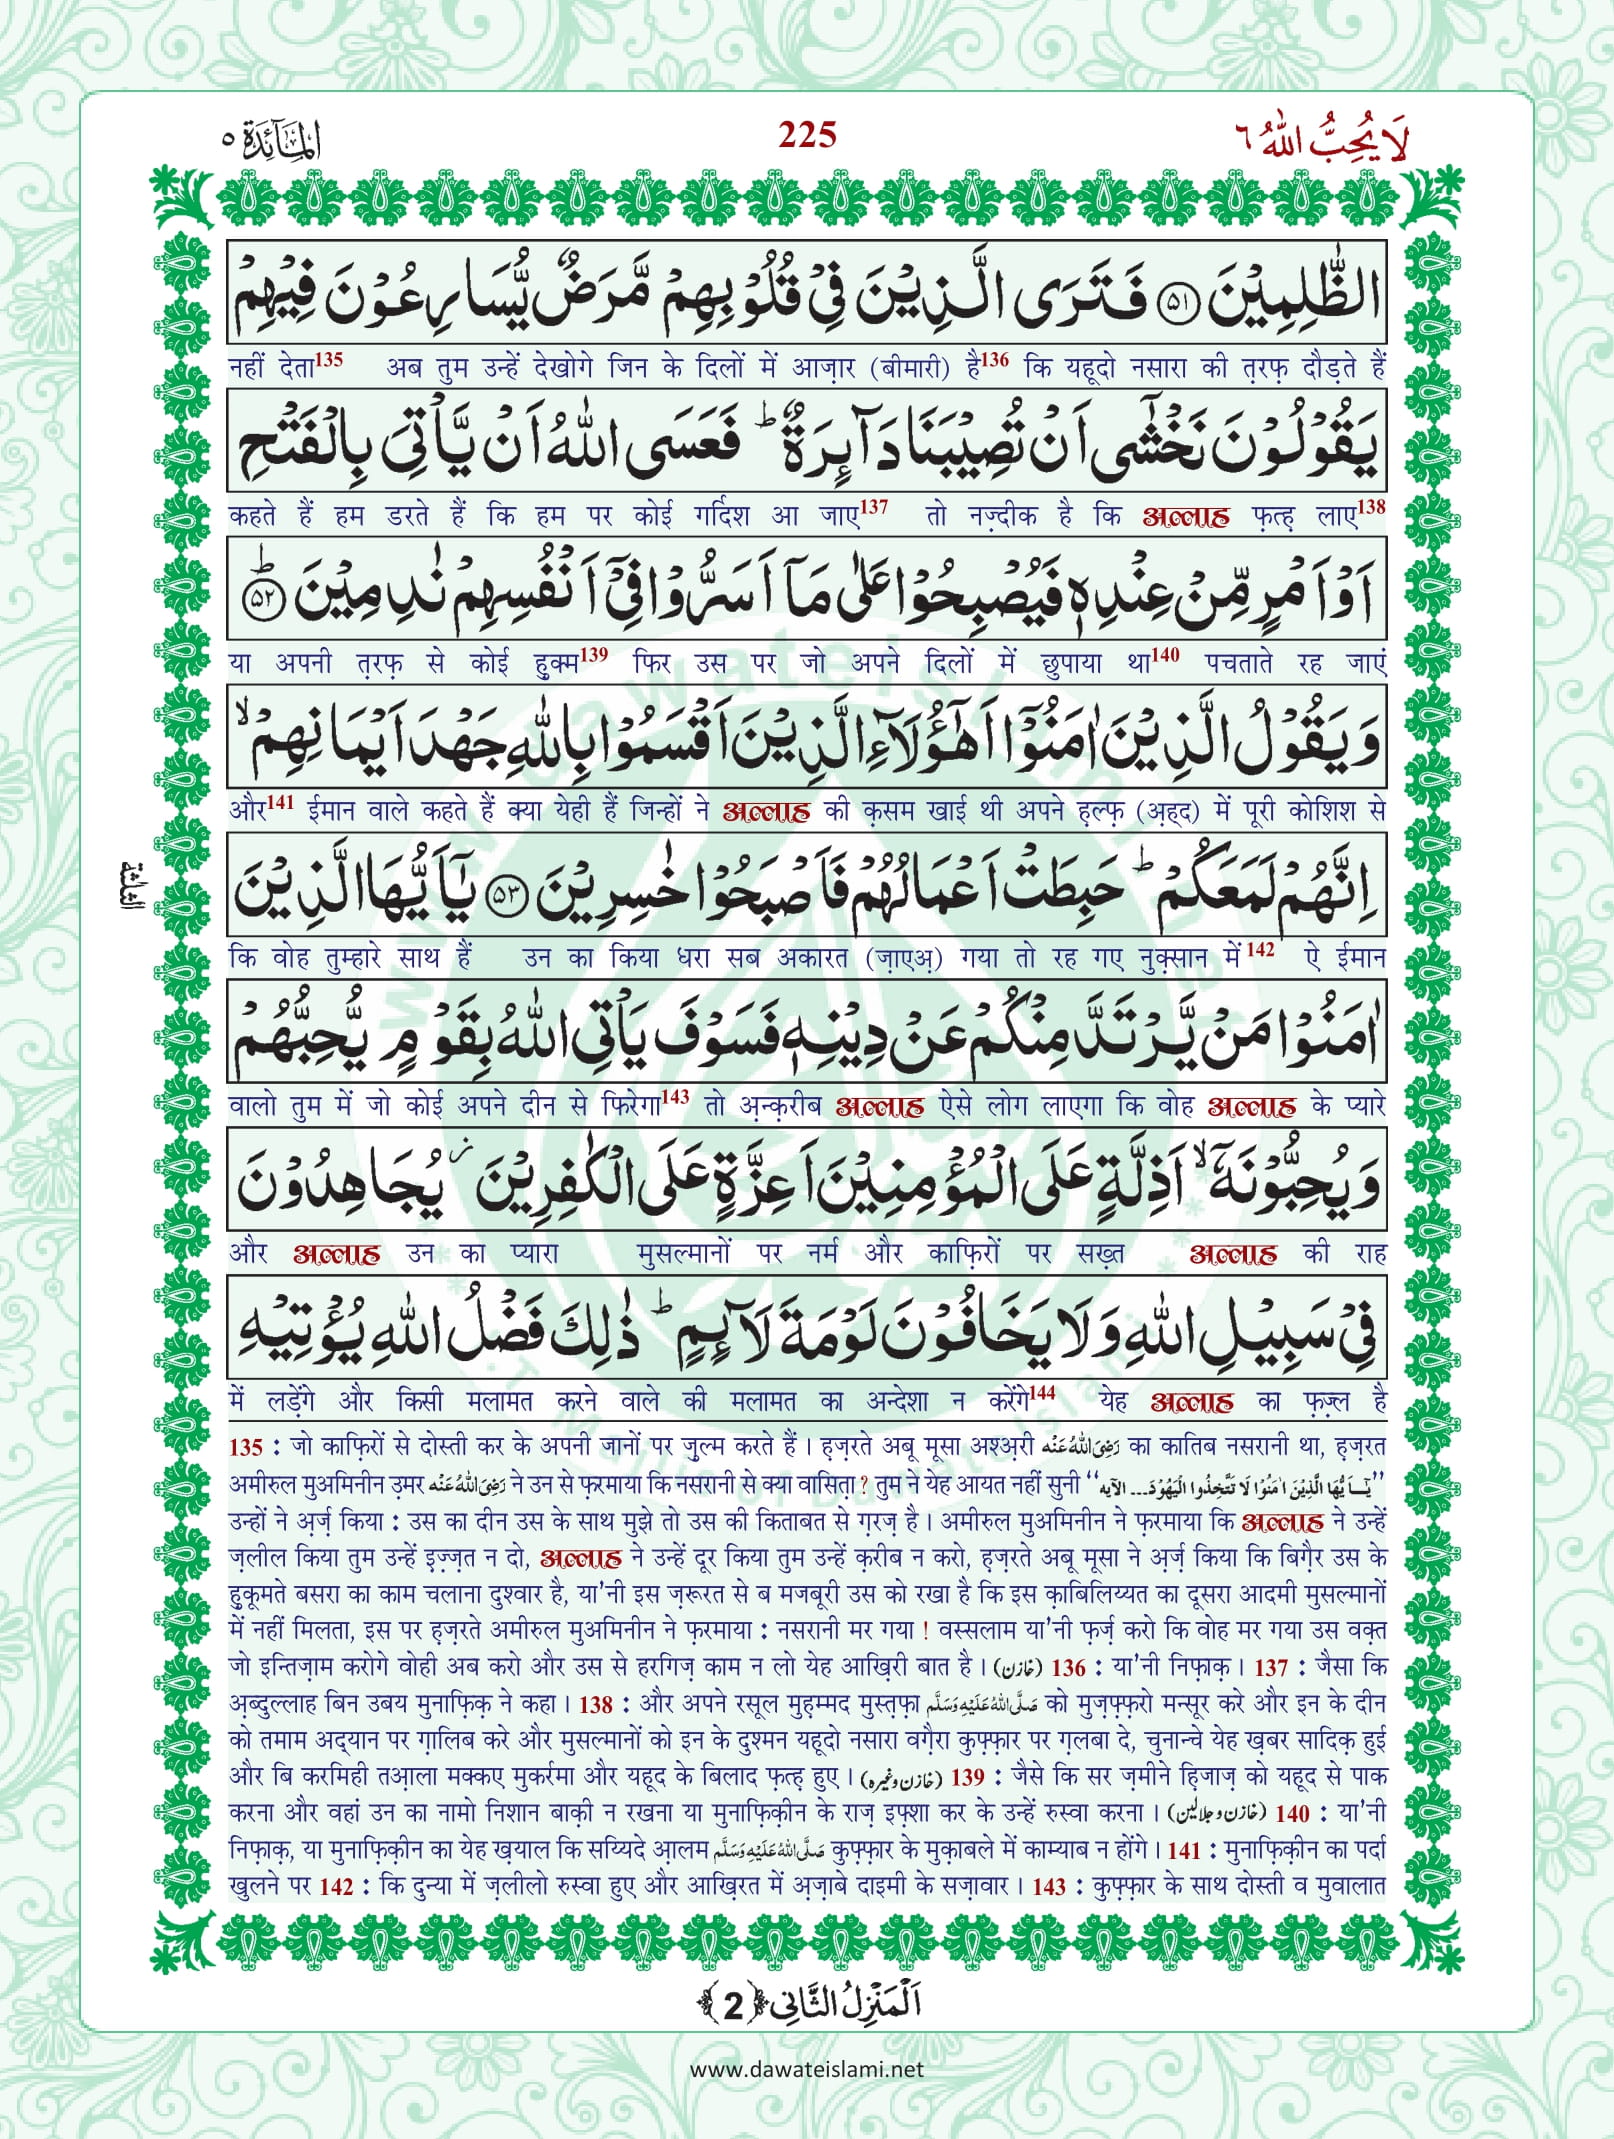 المآئدة ٥
225
لَا يُحِبُّ اللّٰهُ ٦
الظّٰلِمِيْنَ ﴿٥١﴾ فَتَرَى الَّذِيْنَ فِيْ قُلُوْبِهِمْ مَّرَضٌ يُّسَارِعُوْنَ فِيْهِمْ
नहीं देता135 अब तुम उन्हें देखोगे जिन के दिलों में आज़ार (बीमारी) है136 कि यहूदो नसारा की त़रफ़ दौड़ते हैं
يَقُوْلُوْنَ نَخْشٰۤى اَنْ تُصِيْبَنَا دَآىِٕرَةٌ ؕ فَعَسَى اللّٰهُ اَنْ يَّاْتِيَ بِالْفَتْحِ
कहते हैं हम डरते हैं कि हम पर कोई गर्दिश आ जाए137 तो नज़्दीक है कि अल्लाह फ़त्ह़ लाए138
اَوْ اَمْرٍ مِّنْ عِنْدِهٖ فَيُصْبِحُوْا عَلٰى مَاۤ اَسَرُّوْا فِيْۤ اَنْفُسِهِمْ نٰدِمِيْنَ ﴿٥٢﴾ؕ
या अपनी त़रफ़ से कोई हुक्म139 फिर उस पर जो अपने दिलों में छुपाया था140 पचताते रह जाएं
وَيَقُوْلُ الَّذِيْنَ اٰمَنُوْۤا اَهٰۤؤُلَآءِ الَّذِيْنَ اَقْسَمُوْا بِاللّٰهِ جَهْدَ اَيْمَانِهِمْ ۙ
और141 ईमान वाले कहते हैं क्या येही हैं जिन्हों ने अल्लाह की क़सम खाई थी अपने ह़ल्फ़ (अ़ह्द) में पूरी कोशिश से
اِنَّهُمْ لَمَعَكُمْ ؕ حَبِطَتْ اَعْمَالُهُمْ فَاَصْبَحُوْا خٰسِرِيْنَ ﴿٥٣﴾ يٰۤاَيُّهَا الَّذِيْنَ
الثلثة
कि वोह तुम्हारे साथ हैं उन का किया धरा सब अकारत (ज़ाएअ़) गया तो रह गए नुक़्सान में142 ऐ ईमान
اٰمَنُوْا مَنْ يَّرْتَدَّ مِنْكُمْ عَنْ دِيْنِهٖ فَسَوْفَ يَاْتِي اللّٰهُ بِقَوْمٍ يُّحِبُّهُمْ
वालो तुम में जो कोई अपने दीन से फिरेगा143 तो अ़न्क़रीब अल्लाह ऐसे लोग लाएगा कि वोह अल्लाह के प्यारे
وَيُحِبُّوْنَهٗۤ ۙ اَذِلَّةٍ عَلَى الْمُؤْمِنِيْنَ اَعِزَّةٍ عَلَى الْكٰفِرِيْنَ ؗ يُجَاهِدُوْنَ
और अल्लाह उन का प्यारा मुसल्मानों पर नर्म और काफ़िरों पर सख़्त अल्लाह की राह
فِيْ سَبِيْلِ اللّٰهِ وَلَا يَخَافُوْنَ لَوْمَةَ لَآىِٕمٍ ؕ ذٰلِكَ فَضْلُ اللّٰهِ يُؤْتِيْهِ
में लड़ेंगे और किसी मलामत करने वाले की मलामत का अन्देशा न करेंगे144 येह अल्लाह का फ़ज़्ल है
135 : जो काफ़िरों से दोस्ती कर के अपनी जानों पर ज़ुल्म करते हैं। ह़ज़रते अबू मूसा अश्अ़री رَضِيَ اللّٰهُ عَنْه का कातिब नसरानी था, ह़ज़रत
अमीरुल मुअमिनीन उ़मर رَضِيَ اللّٰهُ عَنْه ने उन से फ़रमाया कि नसरानी से क्या वासिता? तुम ने येह आयत नहीं सुनी “يٰۤاَيُّهَا الَّذِيْنَ اٰمَنُوْا لَا تَتَّخِذُوا الْيَهُوْدَ... الآيه”
उन्हों ने अ़र्ज़ किया : उस का दीन उस के साथ मुझे तो उस की किताबत से ग़रज़ है। अमीरुल मुअमिनीन ने फ़रमाया कि अल्लाह ने उन्हें
ज़लील किया तुम उन्हें इ़ज़्ज़त न दो, अल्लाह ने उन्हें दूर किया तुम उन्हें क़रीब न करो, ह़ज़रते अबू मूसा ने अ़र्ज़ किया कि बिग़ैर उस के
हुकूमते बसरा का काम चलाना दुश्वार है, या'नी इस ज़रूरत से ब मजबूरी उस को रखा है कि इस क़ाबिलिय्यत का दूसरा आदमी मुसल्मानों
में नहीं मिलता, इस पर ह़ज़रते अमीरुल मुअमिनीन ने फ़रमाया : नसरानी मर गया ! वस्सलाम या'नी फ़र्ज़ करो कि वोह मर गया उस वक़्त
जो इन्तिज़ाम करोगे वोही अब करो और उस से हरगिज़ काम न लो येह आख़िरी बात है। (خازن) 136 : या'नी निफ़ाक़। 137 : जैसा कि
अ़ब्दुल्लाह बिन उबय मुनाफ़िक़ ने कहा। 138 : और अपने रसूल मुह़म्मद मुस्त़फ़ा صَلَّى اللّٰهُ عَلَيْهِ وَسَلَّم को मुज़फ़्फ़रो मन्सूर करे और इन के दीन
को तमाम अद्यान पर ग़ालिब करे और मुसल्मानों को इन के दुश्मन यहूदो नसारा वग़ैरा कुफ़्फ़ार पर ग़लबा दे, चुनान्चे येह ख़बर सादिक़ हुई
और बि करमिही तआ़ला मक्कए मुकर्रमा और यहूद के बिलाद फ़त्ह़ हुए। (خازن وغيره) 139 : जैसे कि सर ज़मीने ह़िजाज़ को यहूद से पाक
करना और वहां उन का नामो निशान बाक़ी न रखना या मुनाफ़िक़ीन के राज़ इफ़्शा कर के उन्हें रुस्वा करना। (خازن و جلالين) 140 : या'नी
निफ़ाक़, या मुनाफ़िक़ीन का येह ख़याल कि सय्यिदे आ़लम صَلَّى اللّٰهُ عَلَيْهِ وَسَلَّم कुफ़्फ़ार के मुक़ाबले में काम्याब न होंगे। 141 : मुनाफ़िक़ीन का पर्दा
खुलने पर 142 : कि दुन्या में ज़लीलो रुस्वा हुए और आख़िरत में अ़ज़ाबे दाइमी के सज़ावार। 143 : कुफ़्फ़ार के साथ दोस्ती व मुवालात
اَلْمَنْزِلُ الثَّانِي ﴿2﴾
www.dawateislami.net